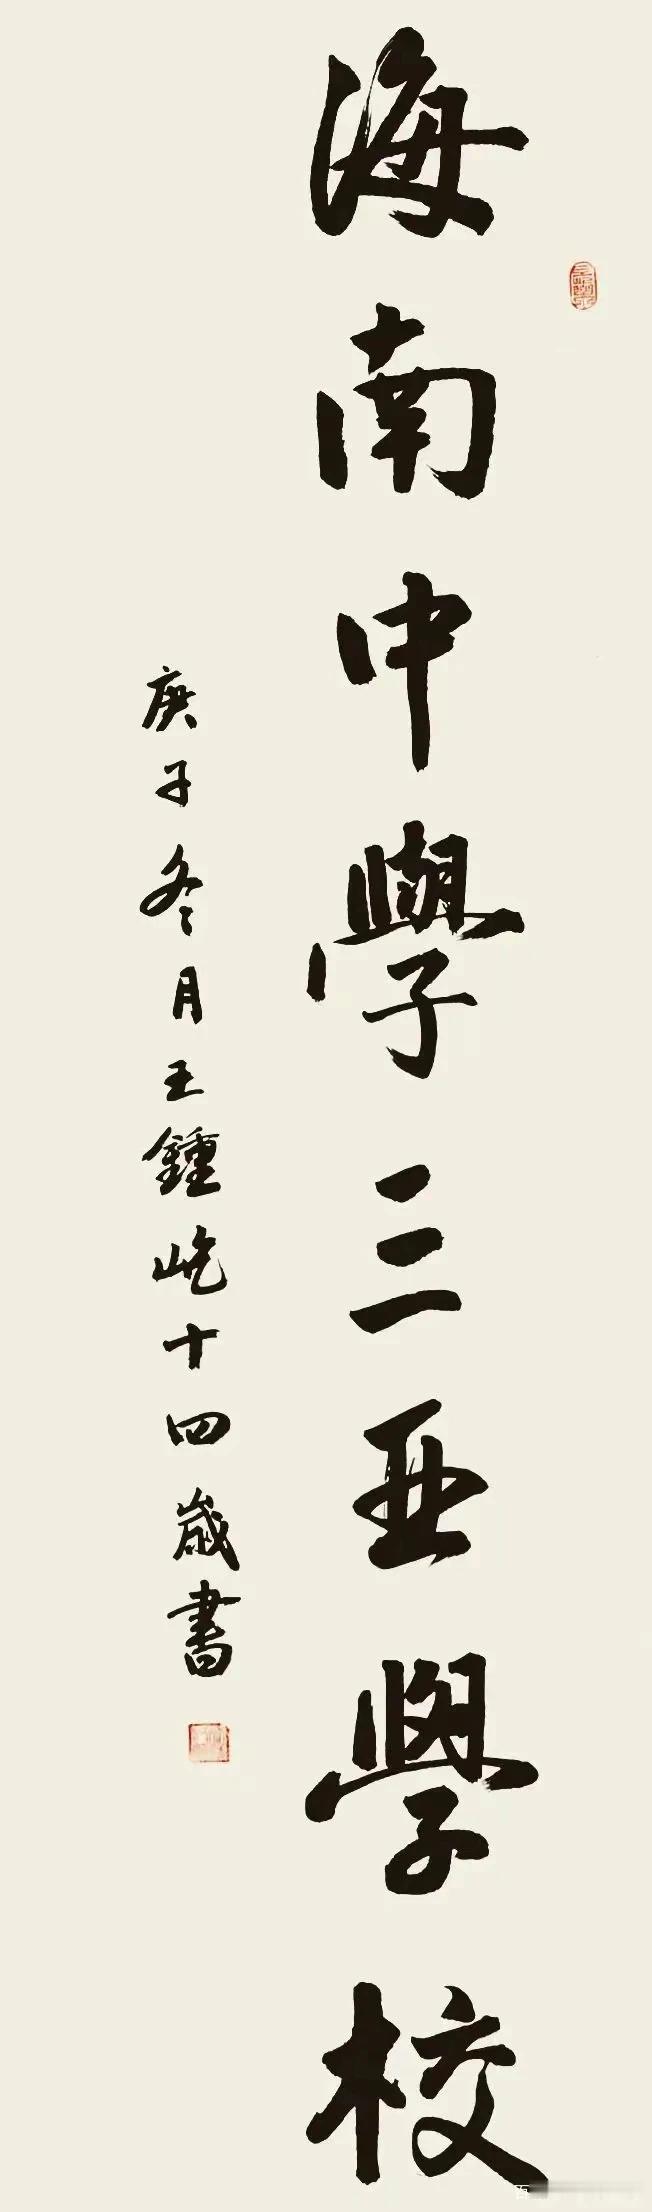 海南中學三亞學校
庚子冬月王鍾屹十四歲書